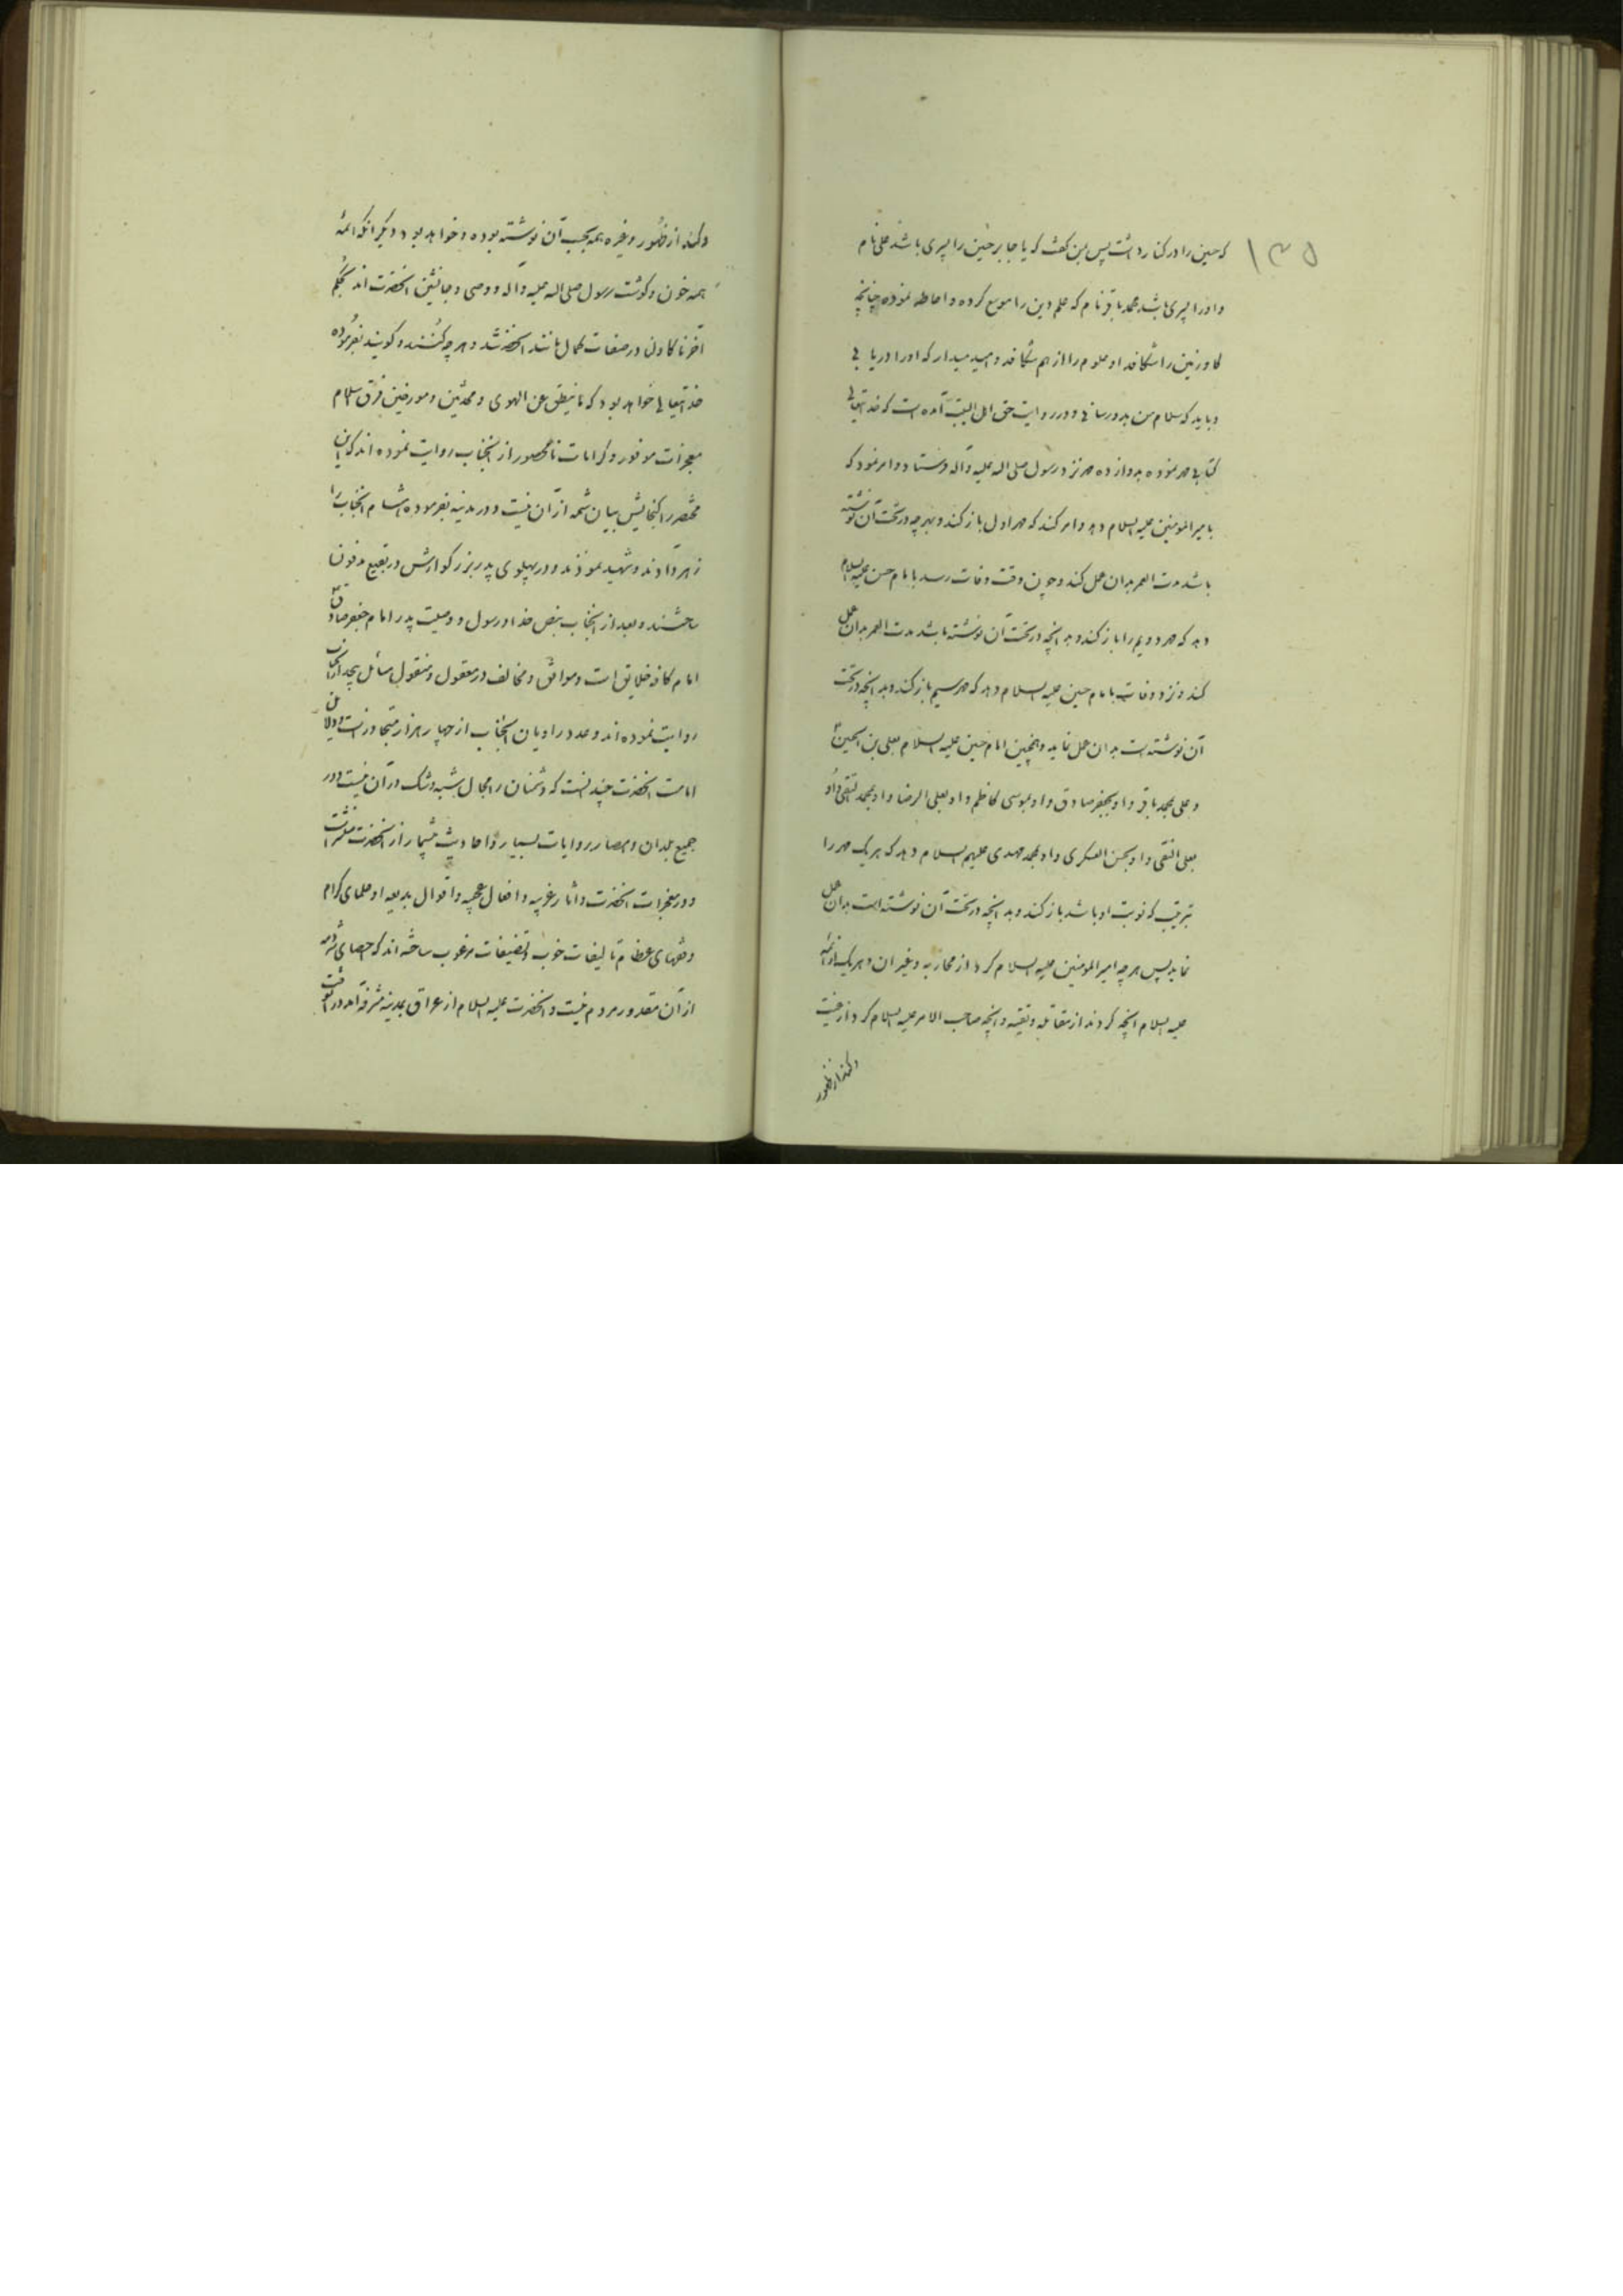 ۱۳۵
که حسین را در کنار داشت پس بمن گفت که یا جابر حسین را پسری باشد علی نام
و او را پسری باشد محمد باقر نام که علم دین را موسع کرده و احاطه نموده چنانچه
گاو زمین را شکافد او علوم را از هم شکافد و امید میدار که او را دریابی
و باید که سلام من بدو رسانی و در روایت حق اهل البیت آمده است که خدایتعالی
کتابی مهر نموده بدوازده مهر نزد رسول صلی الله علیه وآله فرستاد و امر نمود که
بامیرالمومنین علیه السلام دهد و امر کند که مهر اول باز کند و بهر چه در تحت آن نوشته
باشد مدت العمر بدان عمل کند و چون وقت وفات رسد بامام حسن علیه السلام
دهد که مهر دویم را باز کند و بد انچه در تحت آن نوشته باشد مدت العمر بدان عمل
کند و نزد وفات بامام حسین علیه السلام دهد که مهر سیم باز کند و بد انچه در تحت
آن نوشته است بدان عمل نماید و همچنین امام حسین علیه السلام بعلی بن الحسین
و علی بمحمد باقر و او بجعفر صادق و او بموسی کاظم و او بعلی الرضا و او بمحمد التقی و او
بعلی النقی و او بحسن العسکری و او بمحمد مهدی علیهم السلام دهد که هر یک مهر را
بترتیب که نوبت او باشد باز کند و بد انچه در تحت آن نوشته است بدان عمل
نماید پس هر چه امیرالمومنین علیه السلام کرد از محاربه و غیر آن و هر یک از ائمه
علیه السلام انچه کردند از مقاتله و تقیه و انچه صاحب الامر علیه السلام کرد از غیبت
و کند از ظهور
و کند از ظهور و غیره همه بحسب آن نوشته بوده و خواهد بود و دیگر انکه ائمه
همه خون و گوشت رسول صلی الله علیه وآله و وصی و جانشین انحضرت اند بحکم
آخرنا کاولنا در صفات کمال مانند انحضرتند و هر چه کنند و گویند بفرموده
خدایتعالی خواهد بود که ما ینطق عن الهوی و محدثین و مورخین فرق اسلام
معجزات موفور و کرامات نامحصور از انجناب روایت نموده اند که این
مختصر را گنجایش بیان شمه از آن نیست و در مدینه بفرموده هشام انجناب را
زهر دادند و شهید نمودند و در پهلوی پدر بزرگوارش در بقیع مدفون
ساختند و بعد از انجناب بنص خدا و رسول و وصیت پدر امام جعفر صادق
امام کافه خلایق است و موافق و مخالف در معقول و منقول مسائل بیحد از انجناب
روایت نموده اند و عدد راویان انجناب از چهار هزار متجاوز است و دلایل
امامت انحضرت چندانست که دشمنان را مجال شبهه و شک در آن نیست و در
جمیع بلدان و امصار روایات بسیار و احادیث بیشمار از انحضرت منتشر است
و در معجزات انحضرت و آثار غریبه و افعال عجیبه و اقوال بدیعه او علمای کرام
و فقهای عظام تالیفات خوب و تصنیفات مرغوب ساخته اند که احصای
از آن مقدور مردم نیست و انحضرت علیه السلام از عراق بمدینه مشرفه آمد در انوقت